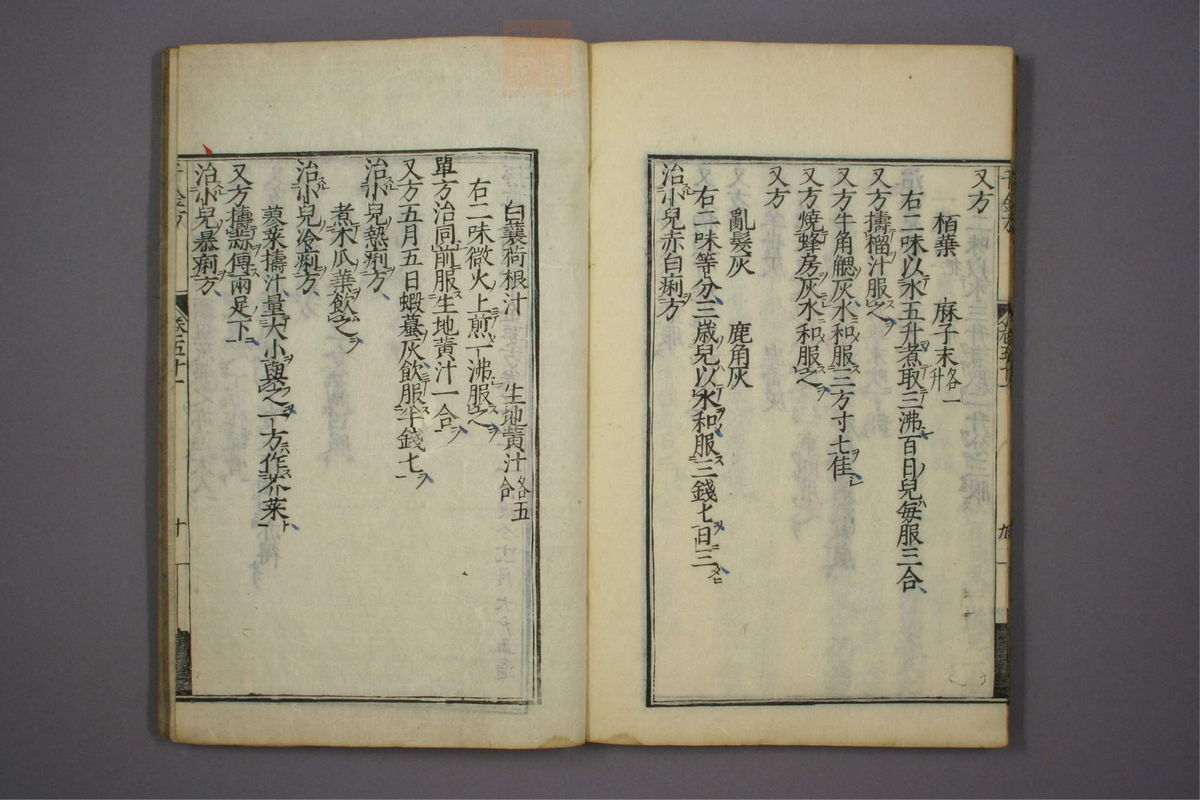 又方
栢葉　麻子末各一升
右二味以水五升煮取三沸百日兒每服三合
又方擣榴汁服之
又方牛角䚡灰水和服三方寸七佳
又方燒蜂房灰水和服之
又方
亂髮灰　鹿角灰
右二味等分三歲兒以水和服三錢七日三
治小兒赤白痢方
白蘘荷根汁　生地黄汁各五合
右二味微火上煎一沸服之
單方治同前服生地黄汁一合
又方五月五日蝦蟇灰飲服半錢七
治小兒熱痢方
煮木瓜葉飲之
治小兒冷痢方
蓼菜擣汁量大小與之一方作芥菜
又方擣蒜傅兩足下
治小兒暴痢方
十